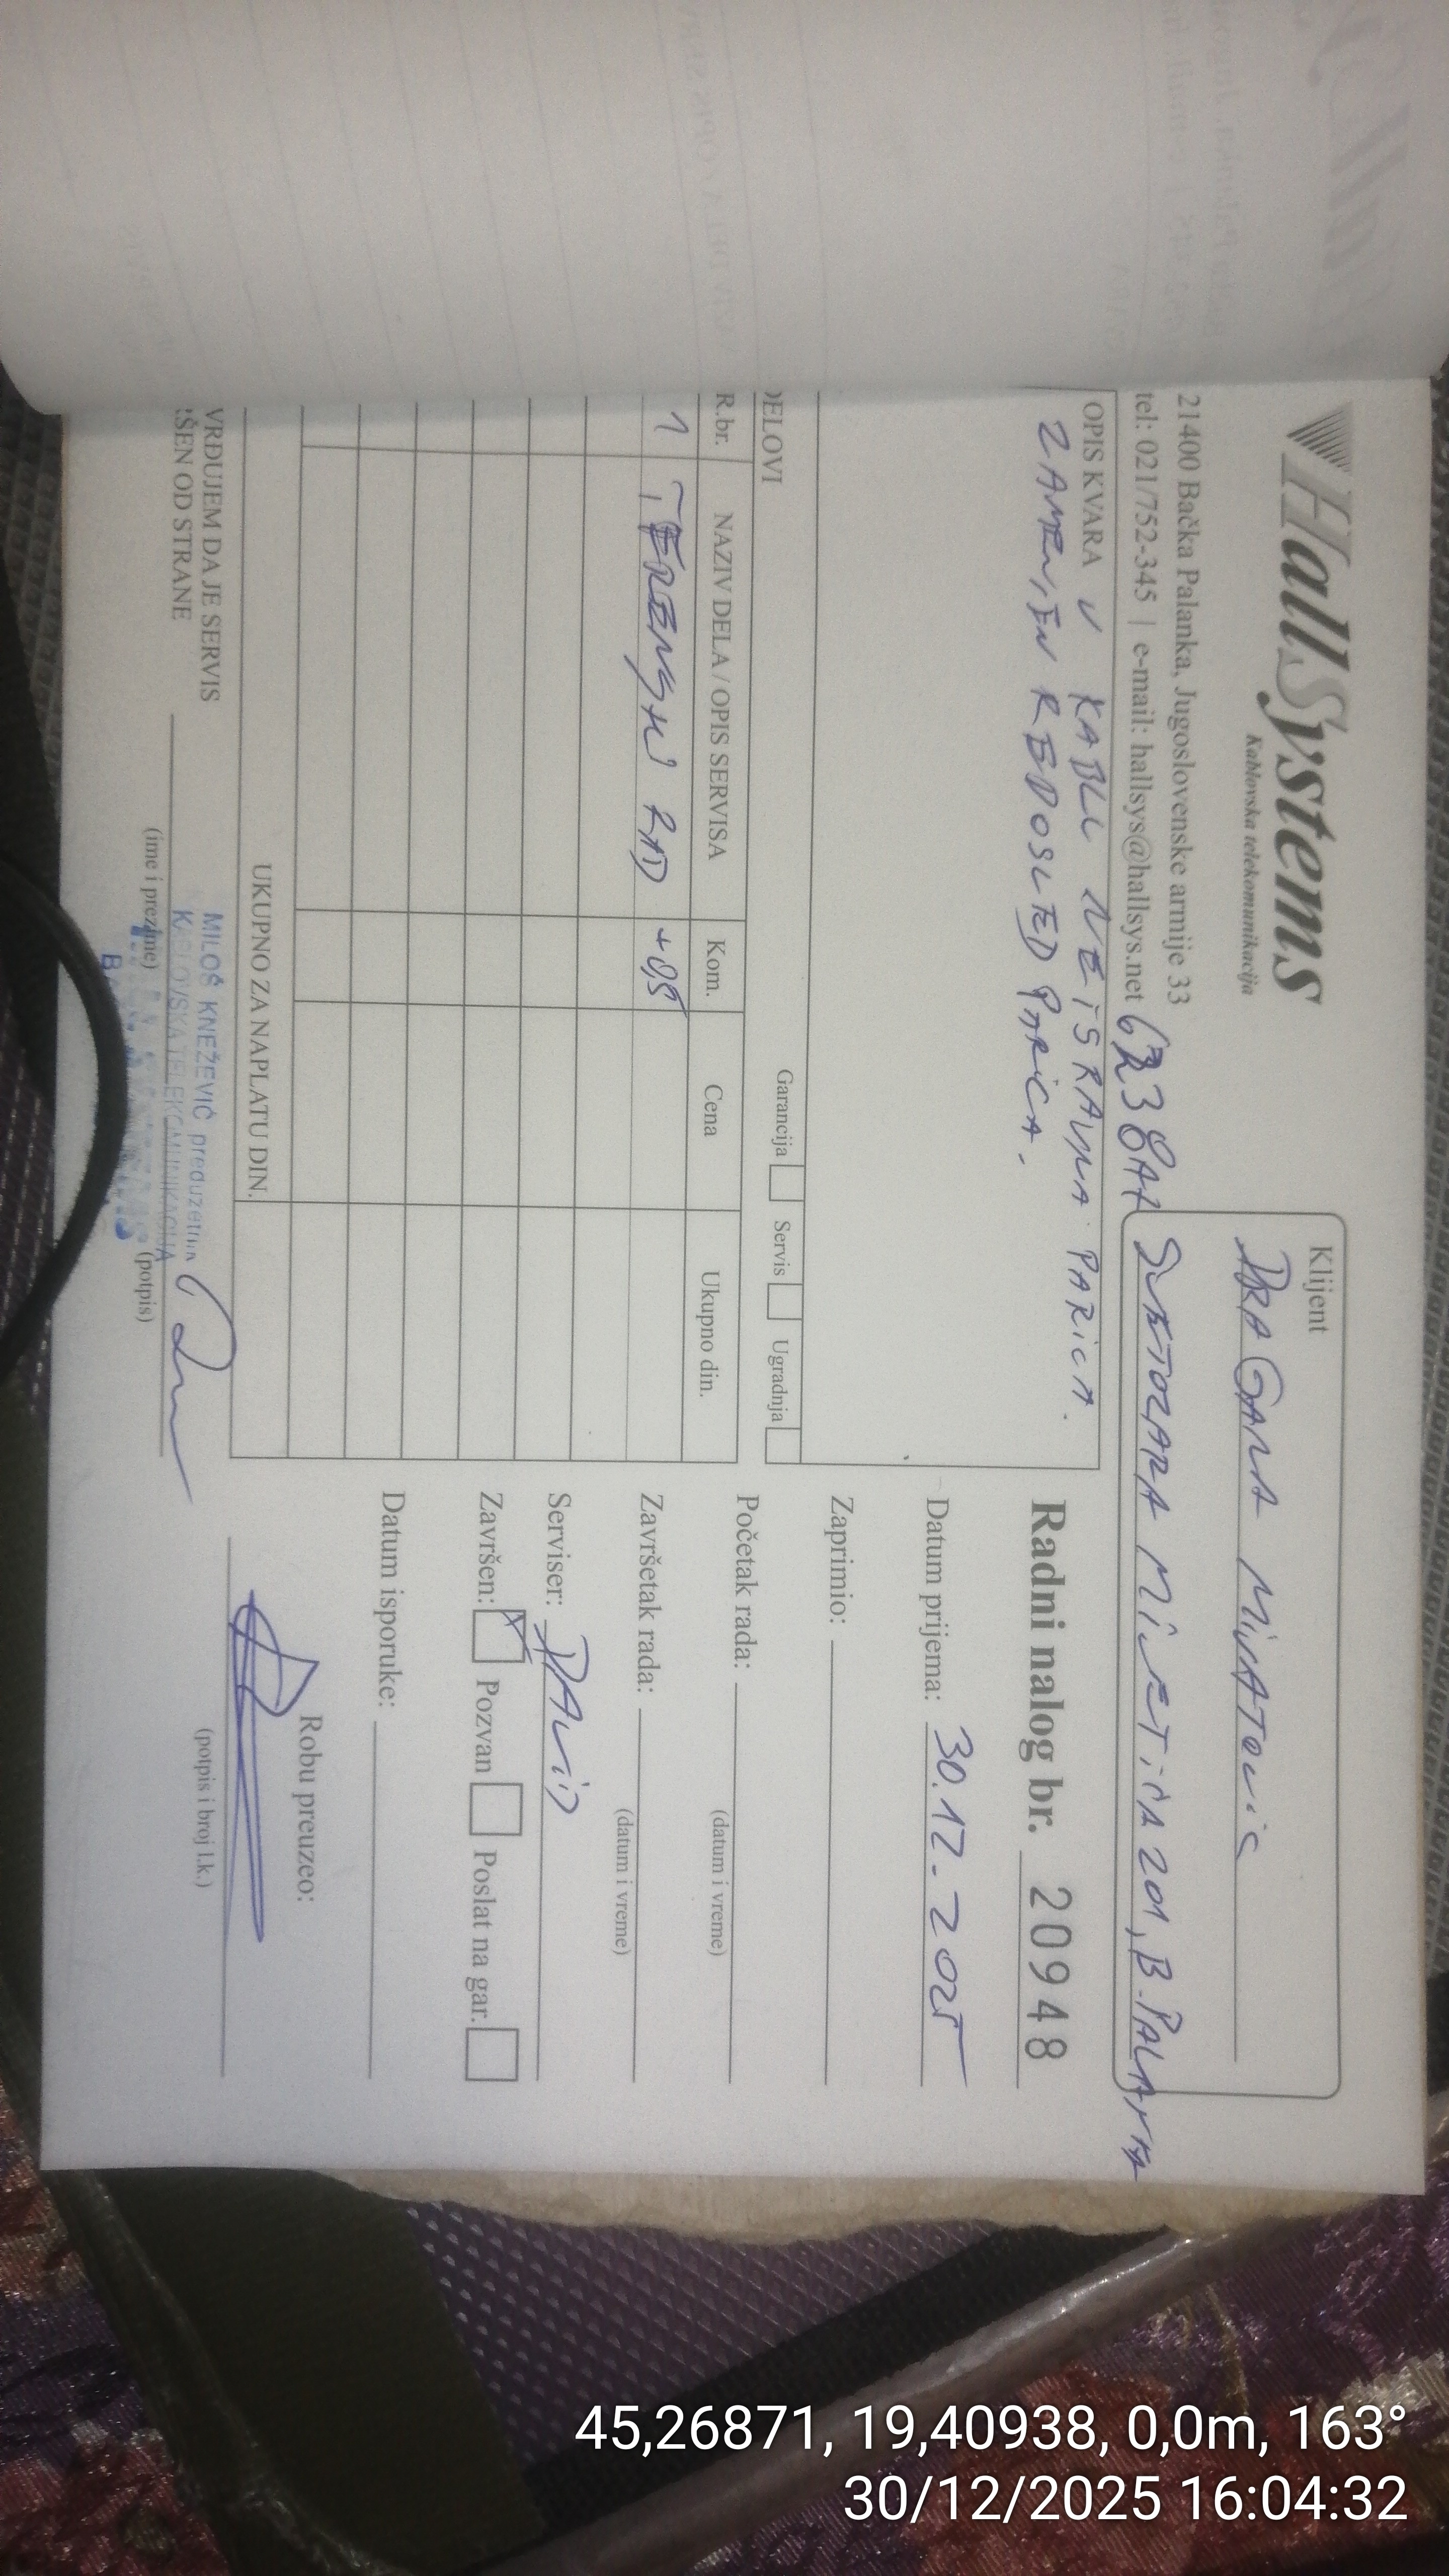 HallSystems
Kablovska telekomunikacija
21400 Bačka Palanka, Jugoslovenske armije 33
tel: 021/752-345 | e-mail: hallsys@hallsys.net
Klijent
DRAGANA MIJATOVIĆ
SVETOZARA MILETIĆA 201, B.PALANKA
OPIS KVARA U KABLU NEISRAVNA PARICA.
ZAMENJEN REDOSLED PARICA.
Garancija Servis Ugradnja
DELOVI
R.br. NAZIV DELA / OPIS SERVISA Kom. Cena Ukupno din.
1 TERENSKI RAD +0,5
UKUPNO ZA NAPLATU DIN.
VRĐUJEM DA JE SERVIS
ŠEN OD STRANE
(ime i prezime) (potpis)
MILOŠ KNEŽEVIĆ preduzetnik
KABLOVSKA TELEKOMUNIKACIJA
Radni nalog br. 20948
Datum prijema: 30.12.2025
Zaprimio:
Početak rada:
(datum i vreme)
Završetak rada:
(datum i vreme)
Serviser: DAVID
Završen: Pozvan Poslat na gar.
Datum isporuke:
Robu preuzeo:
(potpis i broj l.k.)
45,26871, 19,40938, 0,0m, 163°
30/12/2025 16:04:32